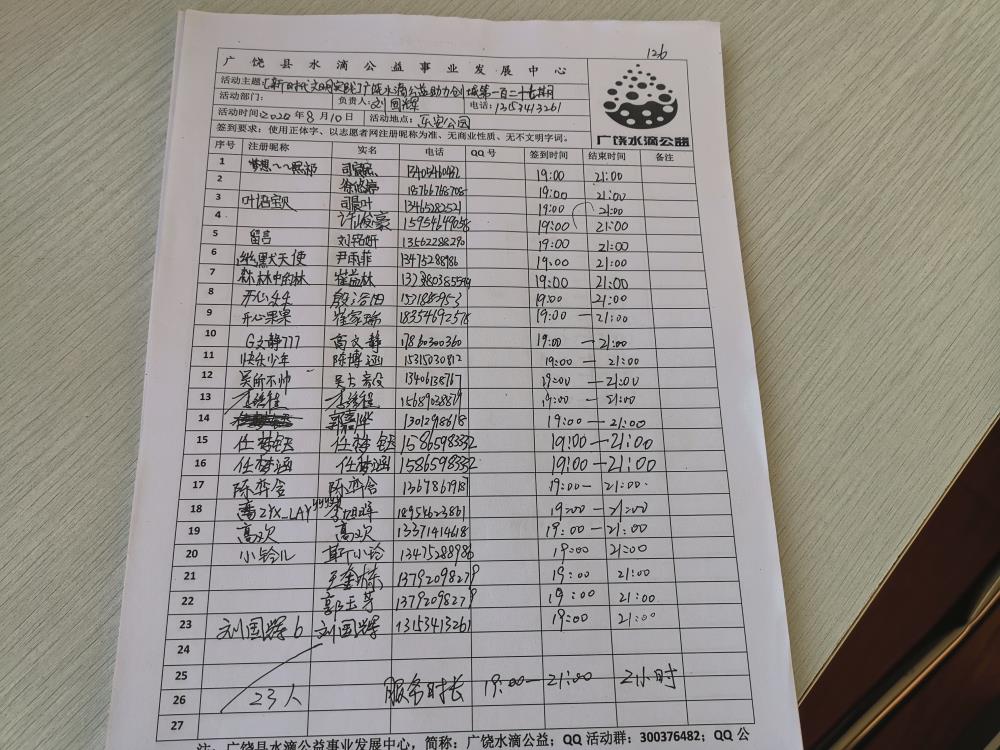 126
广饶县水滴公益事业发展中心
活动主题:【新时代文明实践】广饶水滴公益助力创城第一百二十七期
活动部门: 负责人: 刘国辉 电话: 13153413261
活动时间 2020年8月10日 活动地点: 乐安公园
签到要求:使用正体字、以志愿者网注册昵称为准、无商业性质、无不文明字词。
广饶水滴公益
序号 注册昵称 实名 电话 QQ号 签到时间 结束时间 备注
1 梦想~~熙 13403460482 19:00 21:00
2 徐悠婷 18766768708 19:00 21:00
3 叶语宝贝 司晨叶 13465282521 19:00 21:00
4 许俊豪 15954649058 19:00 21:00
5 留言 刘铭妍 13562288290 19:00 21:00
6 幽默天使 尹雨菲 13475288986 19:00 21:00
7 森林中的林 崔益林 19:00 21:00
8 开心乐乐 19:00 21:00
9 开心果果 崔家瑞 18354692578 19:00 — 21:00
10 G文静777 高文静 17860300360 19:00 — 21:00
11 快乐少年 陈博涵 15315030812 19:00 — 21:00
12 吴所不帅 吴 13406138767 19:00 — 21:00
13 15689038879 19:00 — 21:00
14 郭嘉华 1301298618 19:00 — 21:00
15 任梦钰 任梦钰 15865983332 19:00—21:00
16 任梦涵 任梦涵 15865983332 19:00—21:00
17 陈弈含 陈弈含 13678619187 19:00— 21:00.
18 ZYX_LAY 李旭晖 18954623861 19:00 — 21:00
19 高欢 高欢 13371414618 19:00 — 21:00
20 小铃儿 靳小铃 13475288986 19:00 21:00
21 13792098279 19:00 21:00
22 郭玉芳 13792098279 19:00 21:00
23 刘国辉6 刘国辉 13153413261 19:00 21:00
24
25
26 23人 服务时长 19:00—21:00 2小时
27
注:广饶县水滴公益事业发展中心,简称:广饶水滴公益;QQ活动群:300376482;QQ公